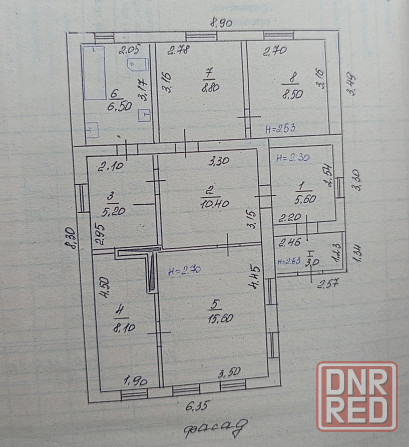 8.90
2.05
2.78
2.70
6
6.50
3.17
3.15
7
8.80
8
8.50
3.15
3.49
H=2.53
2.10
3.30
H=2.30
3
5.20
2
10.40
1
5.60
2.54
3.30
8.30
2.95
3.15
2.20
2.46
H=2.70
H=2.53
I
3,0
1.23
1.34
4.50
4.45
2.57
4
8.10
5
15.60
1.90
3.50
6.35
фасад
DNR
RED